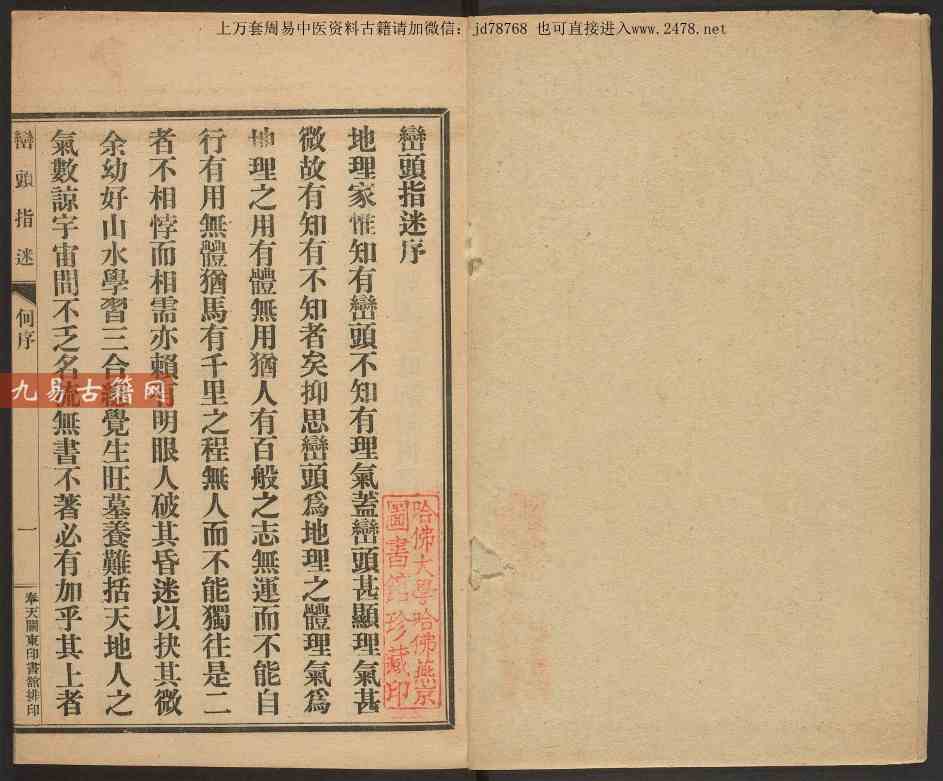 上万套周易中医资料古籍请加微信： jd78768 也可直接进入www.2478.net
巒頭指迷序
地理家惟知有巒頭不知有理氣蓋巒頭甚顯理氣甚
微故有知有不知者矣抑思巒頭爲地理之體理氣爲
地理之用有體無用猶人有百般之志無運而不能自
行有用無體猶馬有千里之程無人而不能獨往是二
者不相悖而相需亦賴有明眼人破其昏迷以抉其微
余幼好山水學習三合 覺生旺墓養難括天地人之
氣數諒宇宙間不乏名流無書不著必有加乎其上者
巒頭指迷
何序
一
奉天關東印書館排印
九易古籍网
哈佛大學哈佛燕京
圖書館珍藏印